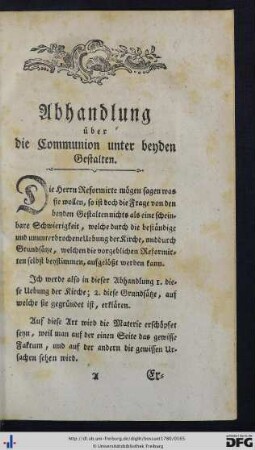 Abhandlung
über
die Communion unter beyden
Gestalten.
Die Herrn Reformirte mögen sagen was
sie wollen, so ist doch die Frage von den
beyden Gestalten nichts als eine schein-
bare Schwierigkeit, welche durch die beständige
und ununterbrochene Uebung der Kirche, und durch
Grundsätze, welchen die vorgeblichen Reformir-
ten selbst beystimmen, aufgelößt werden kann.
Ich werde also in dieser Abhandlung 1. die-
se Uebung der Kirche; 2. diese Grundsätze, auf
welche sie gegründet ist, erklären.
Auf diese Art wird die Materie erschöpfet
seyn, weil man auf der einen Seite das gewisse
Faktum, und auf der andern die gewissen Ur-
sachen sehen wird.
A Er-
© Universitätsbibliothek Freiburg
Gefördert durch
DFG